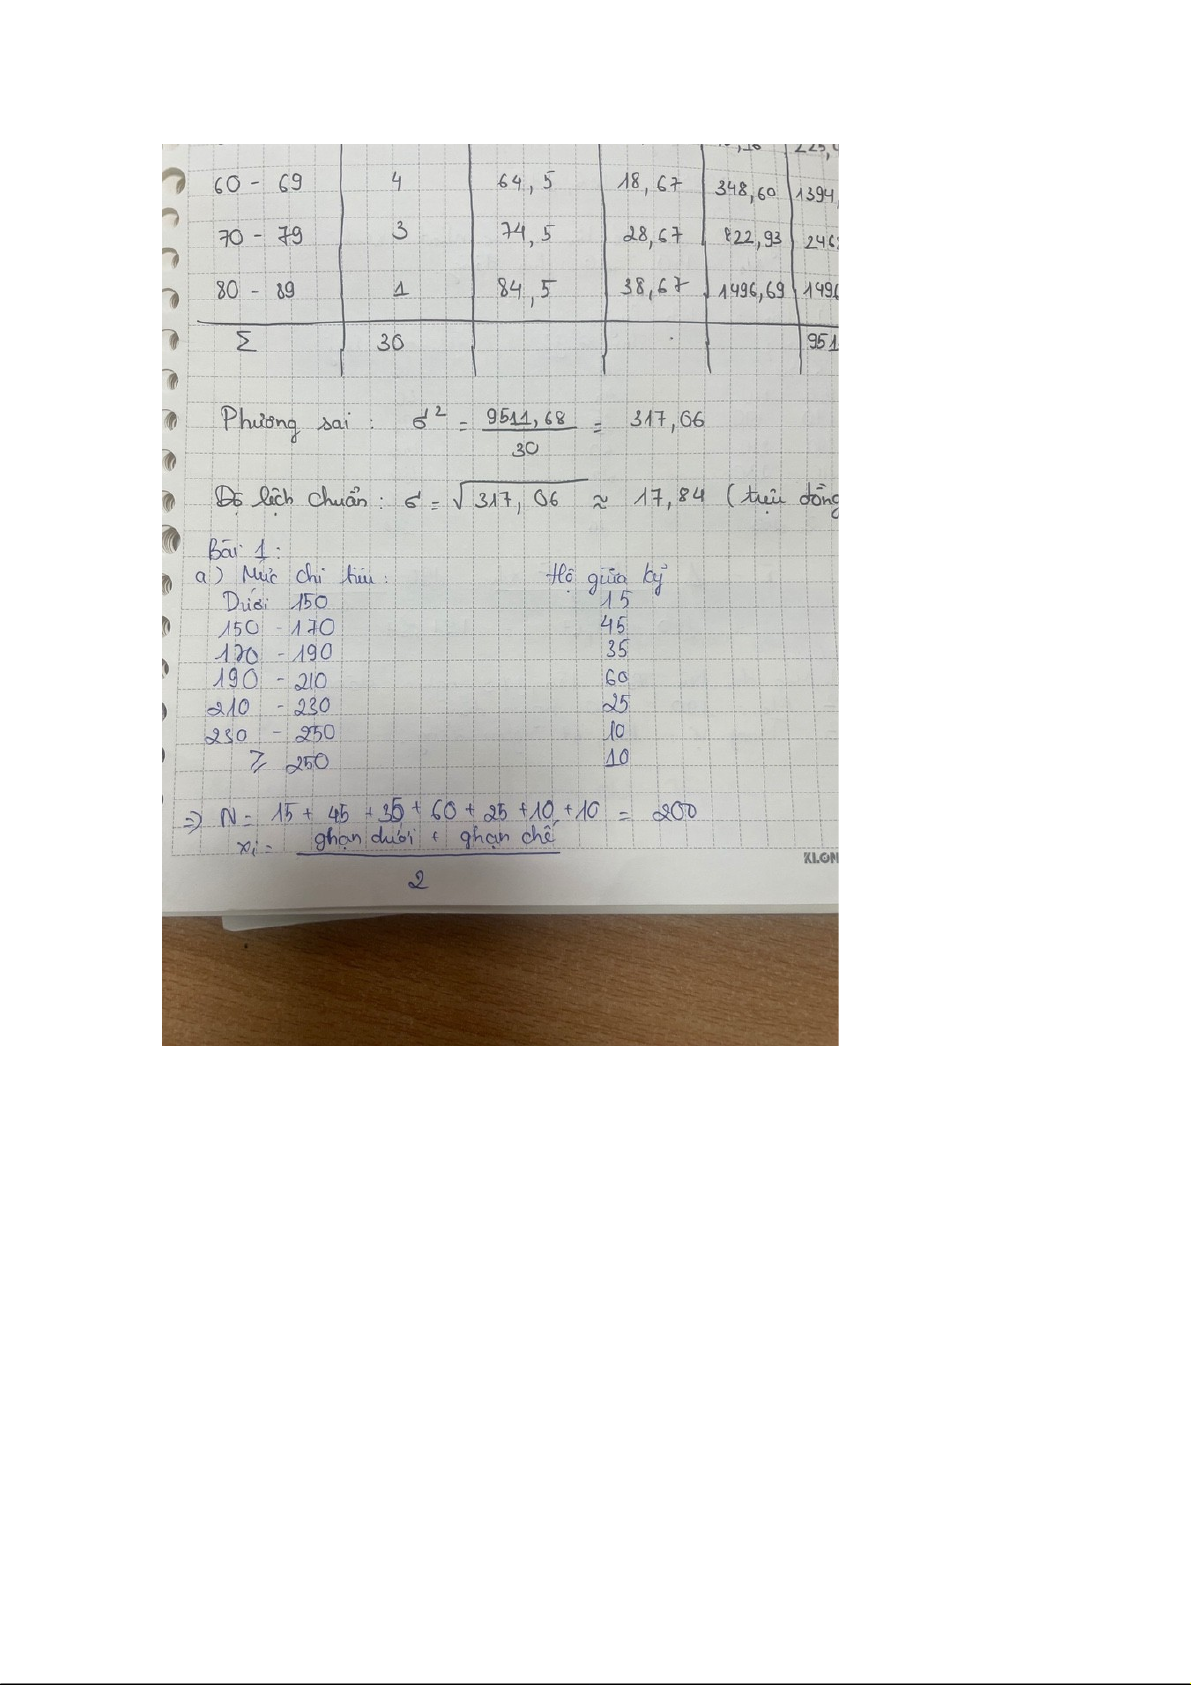 60 - 69 4 64,5 18,67 348,60 1394,
70 - 79 3 74,5 28,67 822,93 246
80 - 89 1 84,5 38,67 1496,69 1496
Σ 30 951
Phương sai : σ² = 9511,68 / 30 = 317,06
Độ lệch chuẩn : σ = √317,06 ≈ 17,84 ( triệu đồng
Bài 1 :
a) Mức chi tiêu : Hộ giữa kỳ
Dưới 150 15
150 - 170 45
170 - 190 35
190 - 210 60
210 - 230 25
230 - 250 10
≥ 250 10
=> N = 15 + 45 + 35 + 60 + 25 + 10 + 10 = 200
xi = ghạn dưới + ghạn chế / 2
KLON